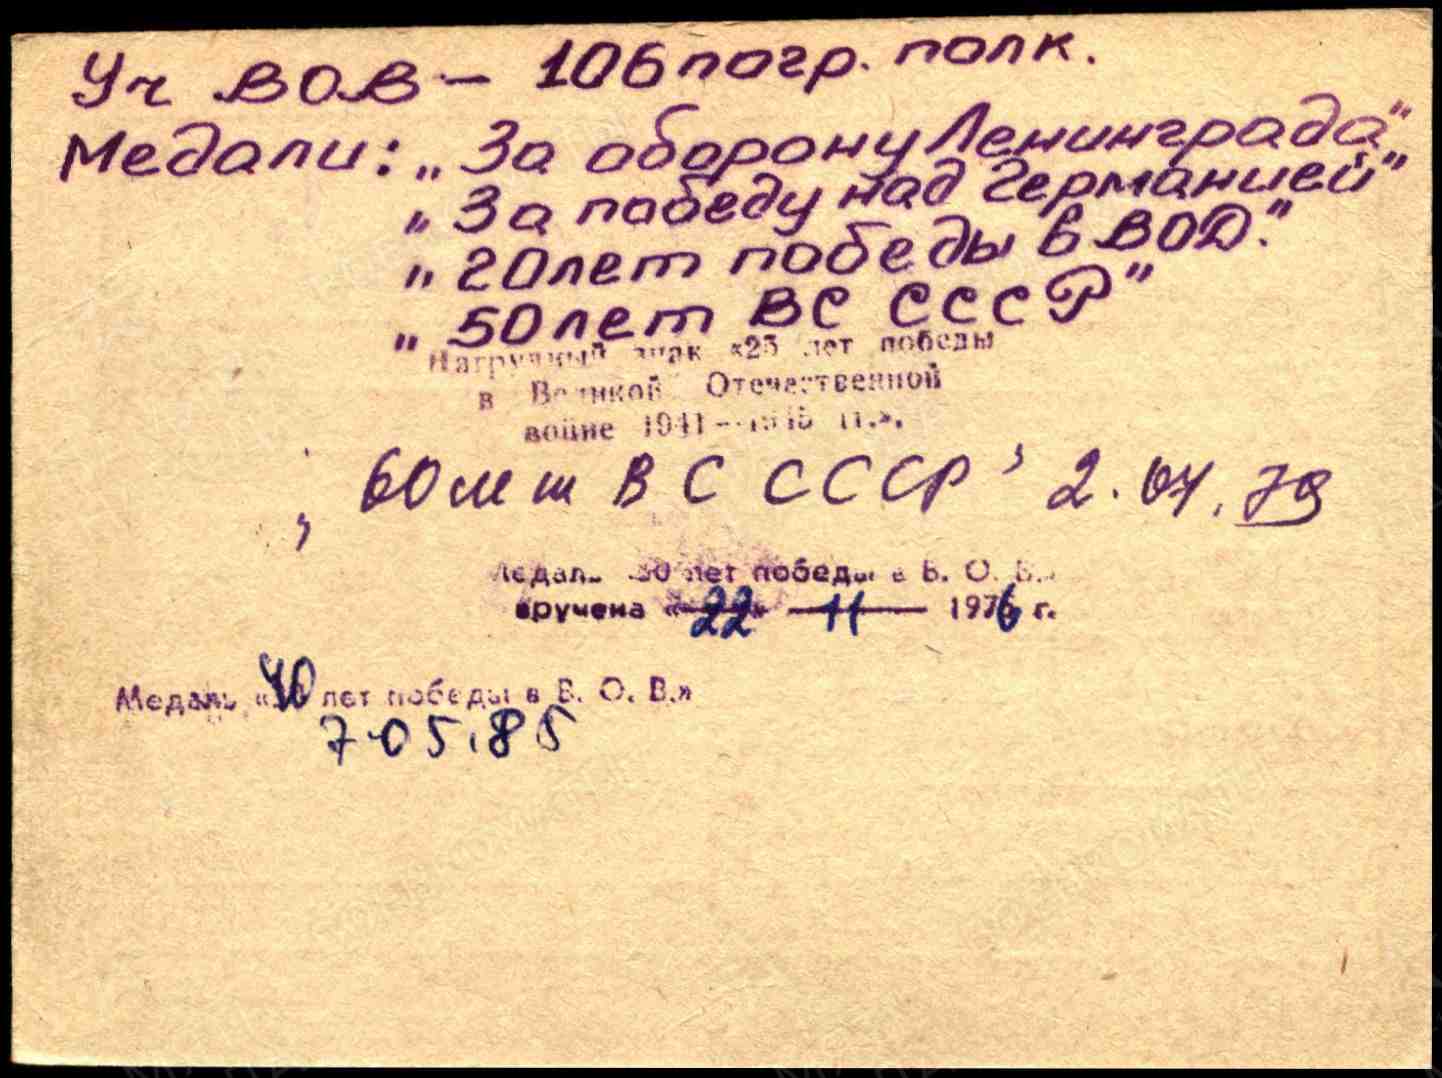 Уч ВОВ - 106 погр. полк.
Медали: „За оборону Ленинграда"
„За победу над Германией"
„20 лет победы в ВОД."
„50 лет ВС СССР"
Нагрудный знак «25 лет победы
в Великой Отечественной
войне 1941—1945 гг.».
„60 лет ВС СССР" 2.04.79
Медаль «30 лет победы в В. О. В.»
вручена «22» 11 1976 г.
Медаль «40 лет победы в В. О. В.»
7.05.85